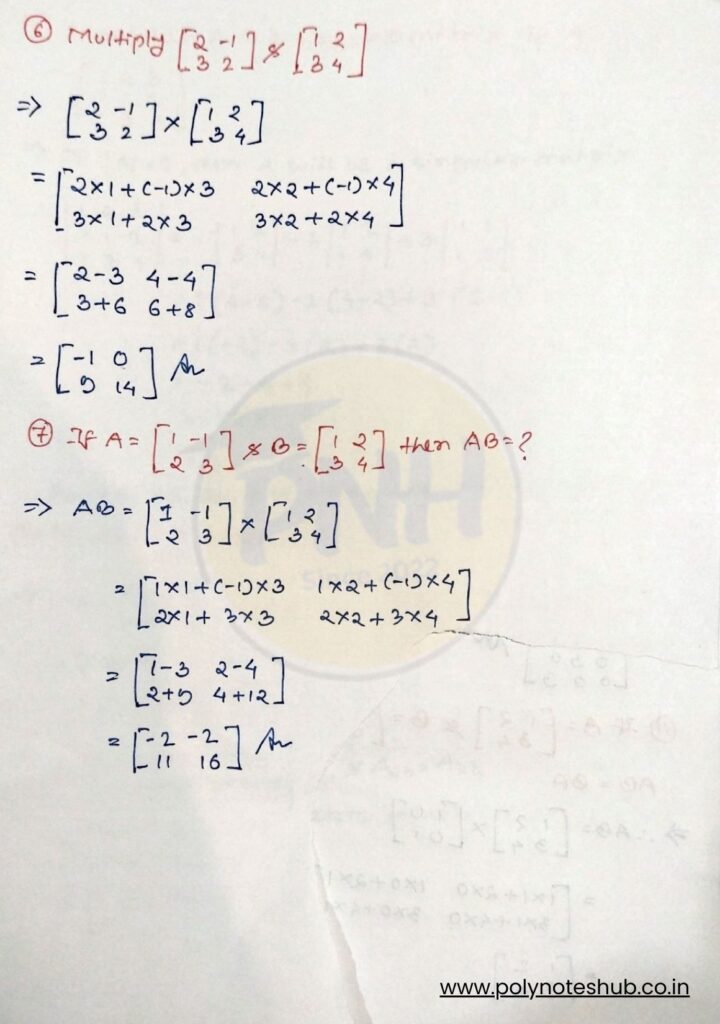 ⑥ Multiply [2 -1 & [1 2
3 2] 3 4]
=> [2 -1 × [1 2
3 2] 3 4]
= [2×1+(-1)×3 2×2+(-1)×4
3×1+2×3 3×2+2×4]
= [2-3 4-4
3+6 6+8]
= [-1 0
9 14] An
⑦ If A = [1 -1 & B = [1 2 then AB = ?
2 3] 3 4]
=> AB = [1 -1 × [1 2
2 3] 3 4]
= [1×1+(-1)×3 1×2+(-1)×4
2×1+ 3×3 2×2+3×4]
= [1-3 2-4
2+9 4+12]
= [-2 -2
11 16] An
PNH
www.polynoteshub.co.in